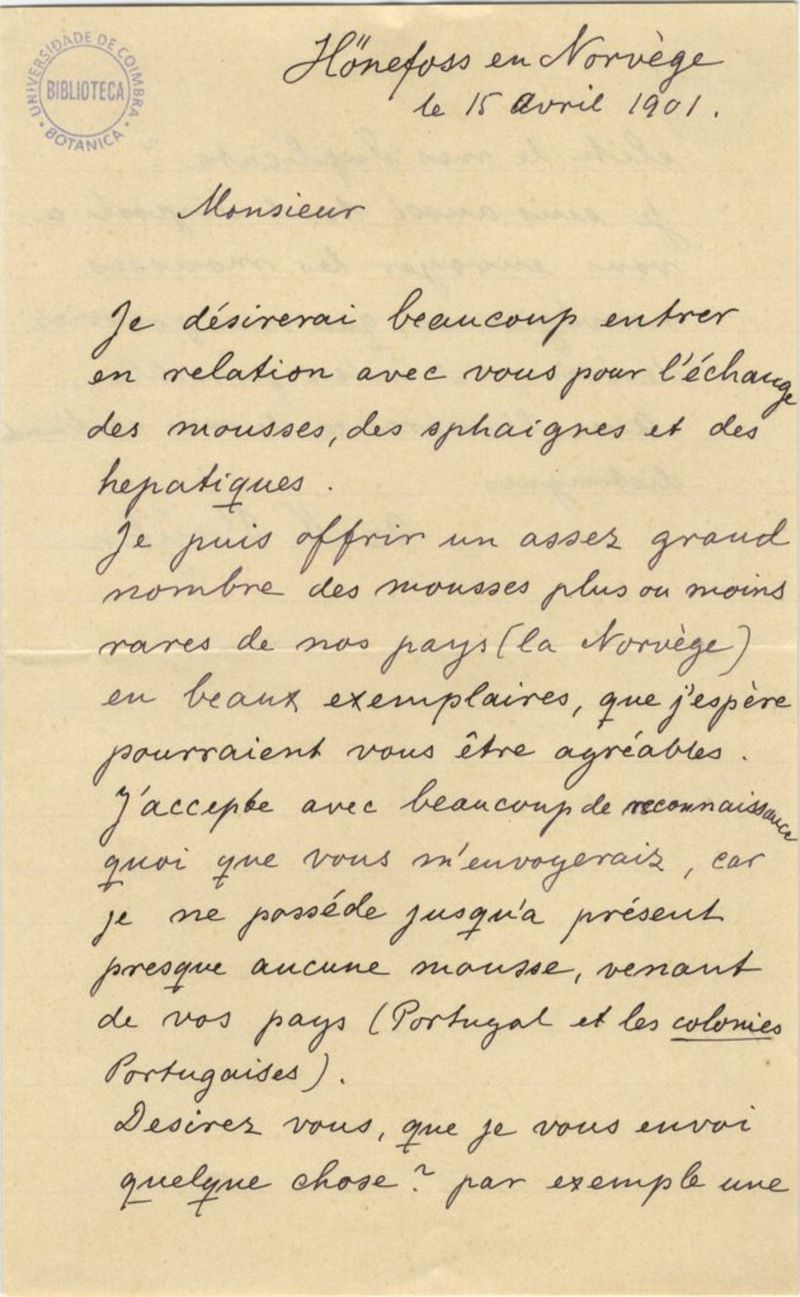 UNIVERSIDADE DE COIMBRA
BIBLIOTECA
BOTANICA
Hőnefoss en Norvège
le 15 avril 1901.
Monsieur
Je désirerai beaucoup entrer
en relation avec vous pour l'échange
des mousses, des sphaignes et des
hepatiques.
Je puis offrir un assez grand
nombre des mousses plus ou moins
rares de nos pays (la Norvège)
en beaux exemplaires, que j'espère
pourraient vous être agréables.
J'accepte avec beaucoup de reconnaissance
quoi que vous m'envoyeraiz, car
je ne posséde jusqu'a présent
presque aucune mousse, venant
de vos pays (Portugal et les colonies
Portugaises).
Desirez vous, que je vous envoi
quelque chose? par exemple une